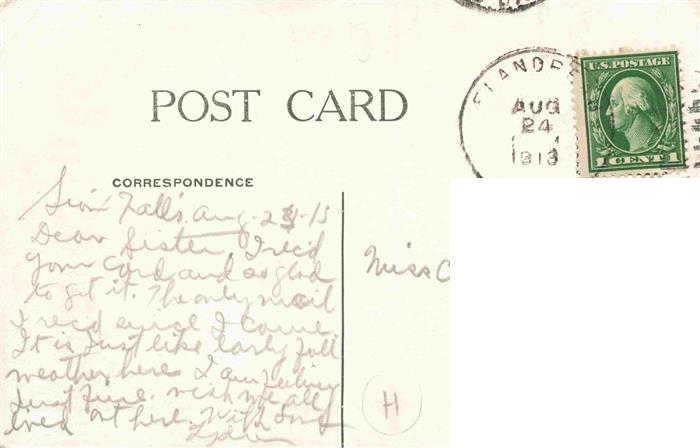 FLANDRE
AUG
24
1913
U.S. POSTAGE
1 CENT 1
POST CARD
CORRESPONDENCE
Sioux Falls. Aug-23-13
Dear Sister, I rec'd
your card and so glad
to get it. The only mail
I rec'd since I came.
It is just like early fall
weather here I am feeling
just fine. wish we all
lived out here. With Love
Miss C
H